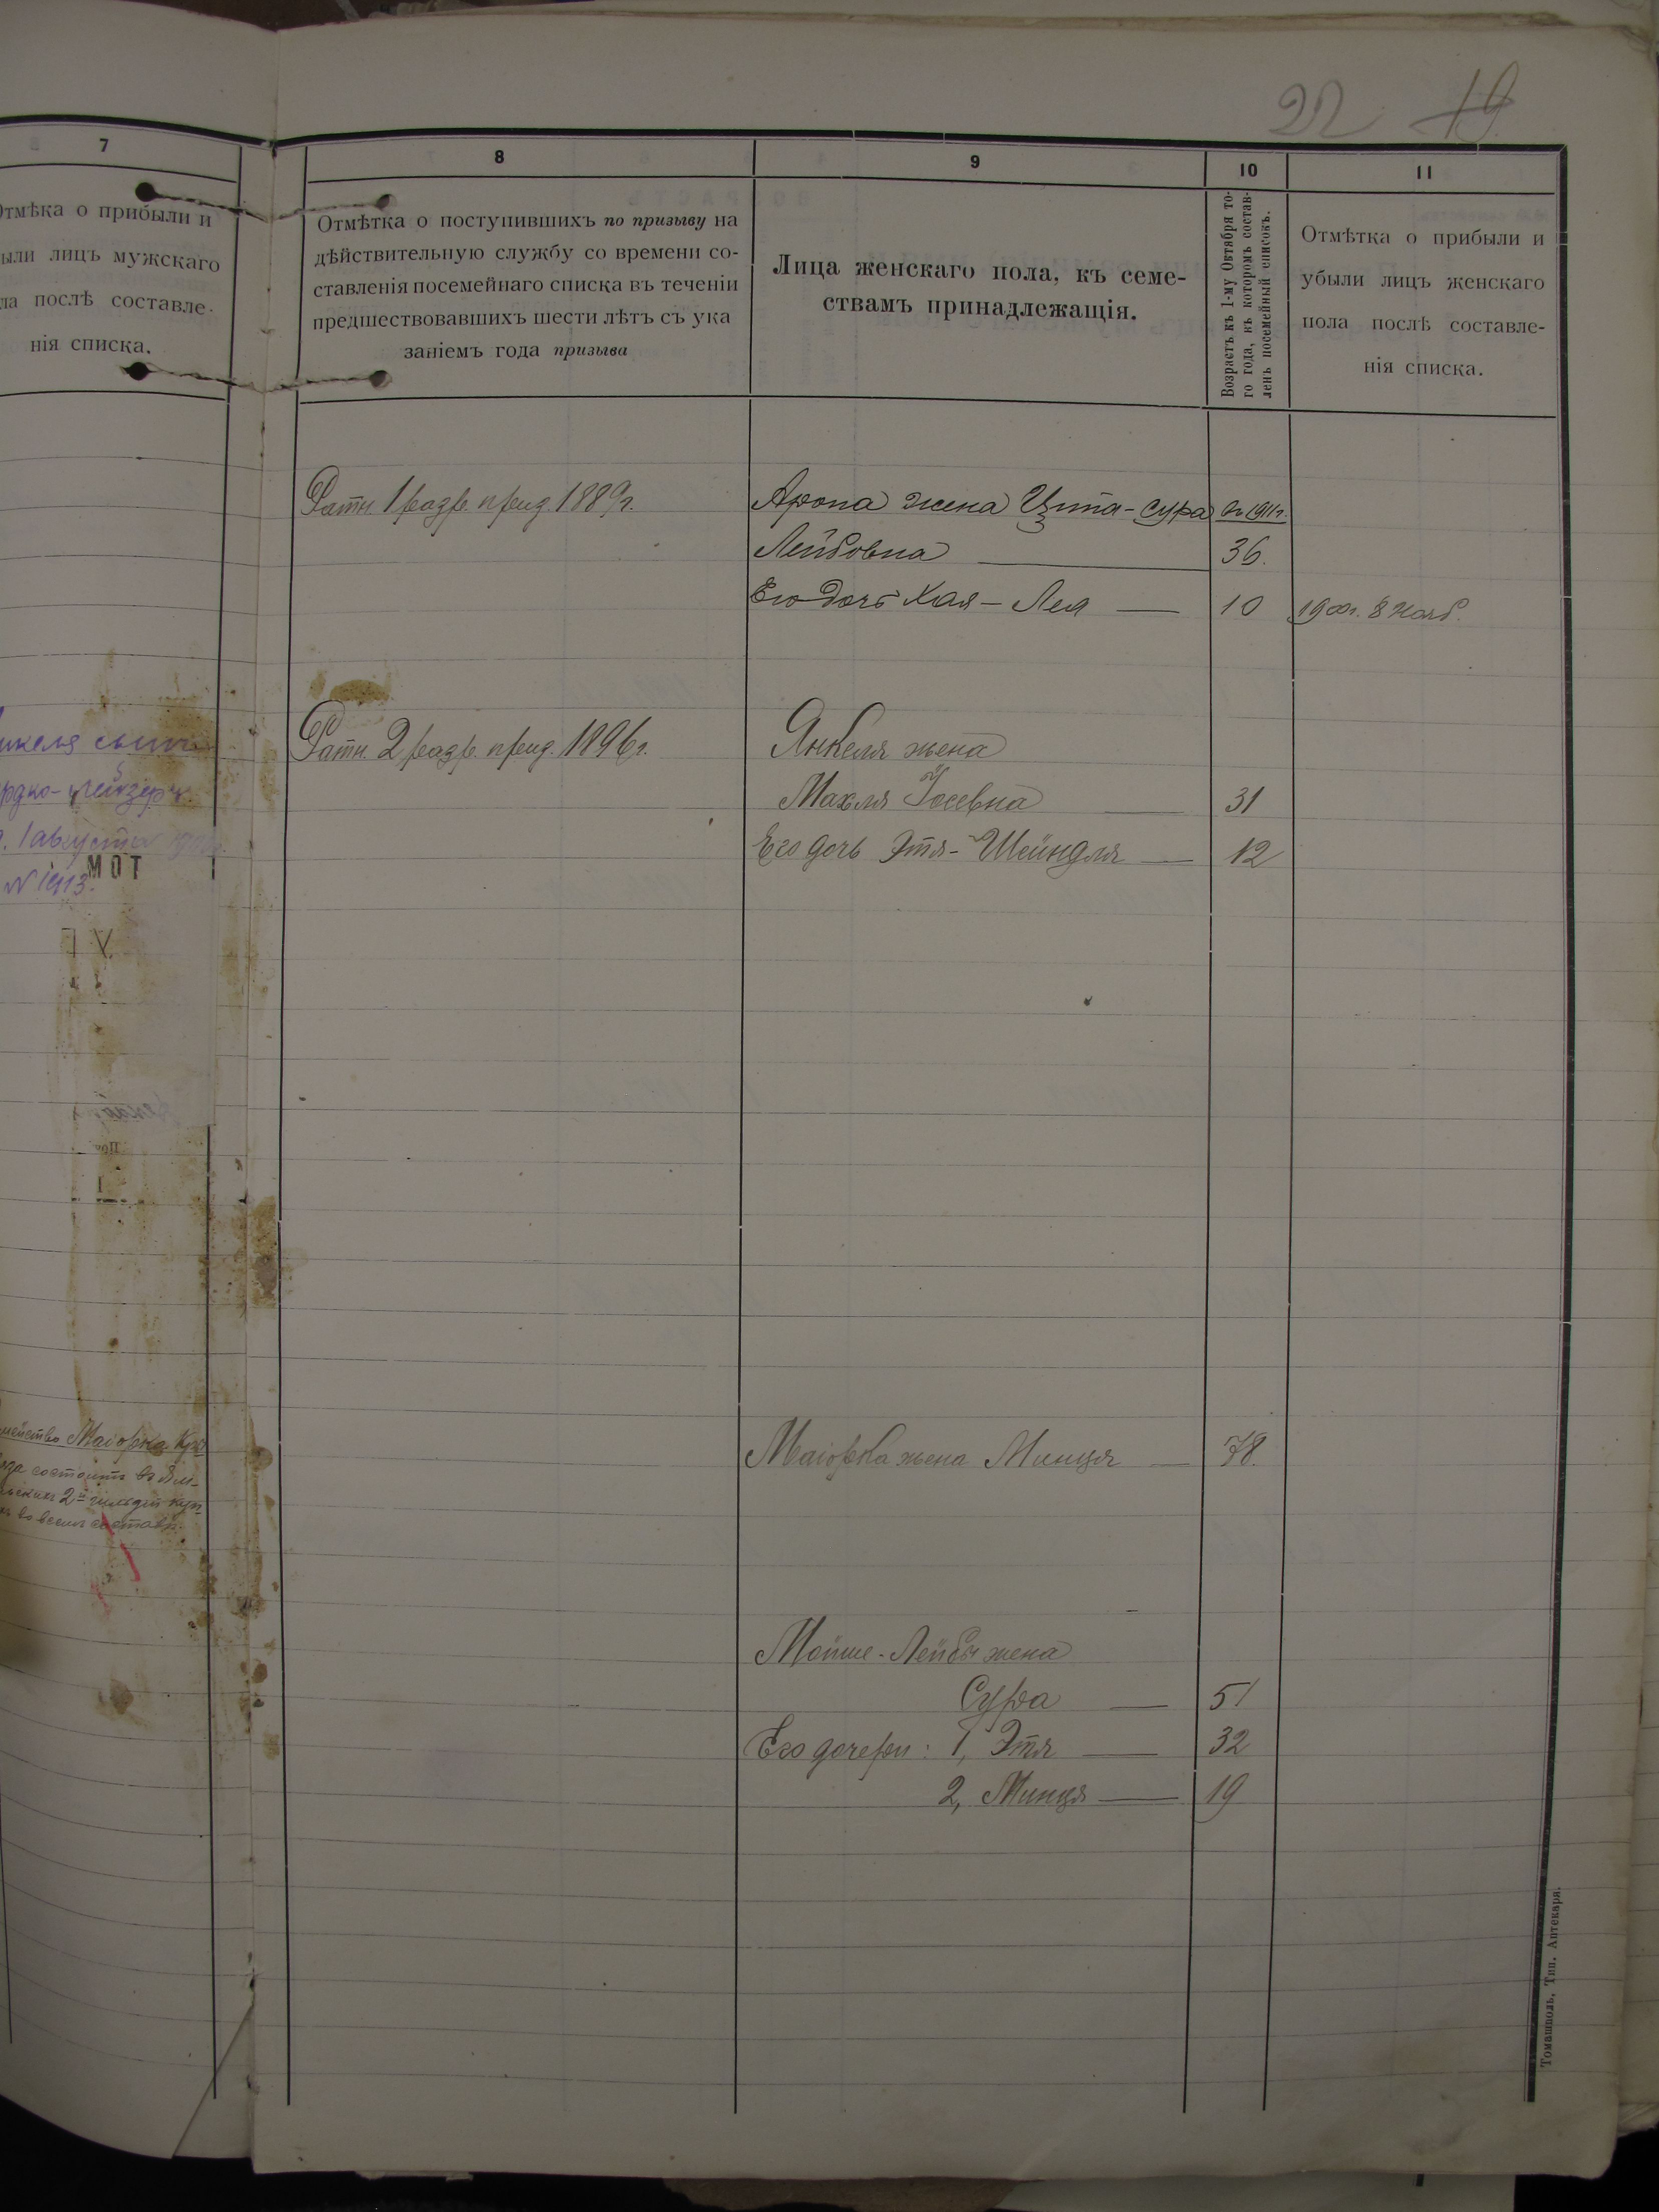 22 19
7
Отмѣка о прибыли и
ыли лицъ мужскаго
ла послѣ составле-
нія списка.
8
Отмѣтка о поступившихъ по призыву на
дѣйствительную службу со времени со-
ставленія посемейнаго списка въ теченіи
предшествовавшихъ шести лѣтъ съ ука
заніемъ года призыва
9
Лица женскаго пола, къ семе-
ствамъ принадлежащія.
10
Возрастъ къ 1-му Октября то-
го года, въ которомъ состав-
ленъ посемейный списокъ.
11
Отмѣтка о прибыли и
убыли лицъ женскаго
пола послѣ составле-
нія списка.
Ратн. 1 разр. призд. 1889 г.
Арона жена Ципа-Сура 1911 г.
Лейбовна 36.
Его дочь Хая-Лея 10 8 Нояб.
Ратн. 2 разр. 1896 г.
Янкеля жена
Махля Іосевна 31
Его дочь Этя-Шейндля 12
1 августа
МОТ
N 1913.
Маіорка
состоитъ
2й гильдіи куп
во всемъ составѣ.
Маіорка жена Минця 78.
Мойше-Лейбы жена
Сура 51
Его дочери: 1, Этя 32
2, Минця 19
Томашполь, Тип. Аптекаря.